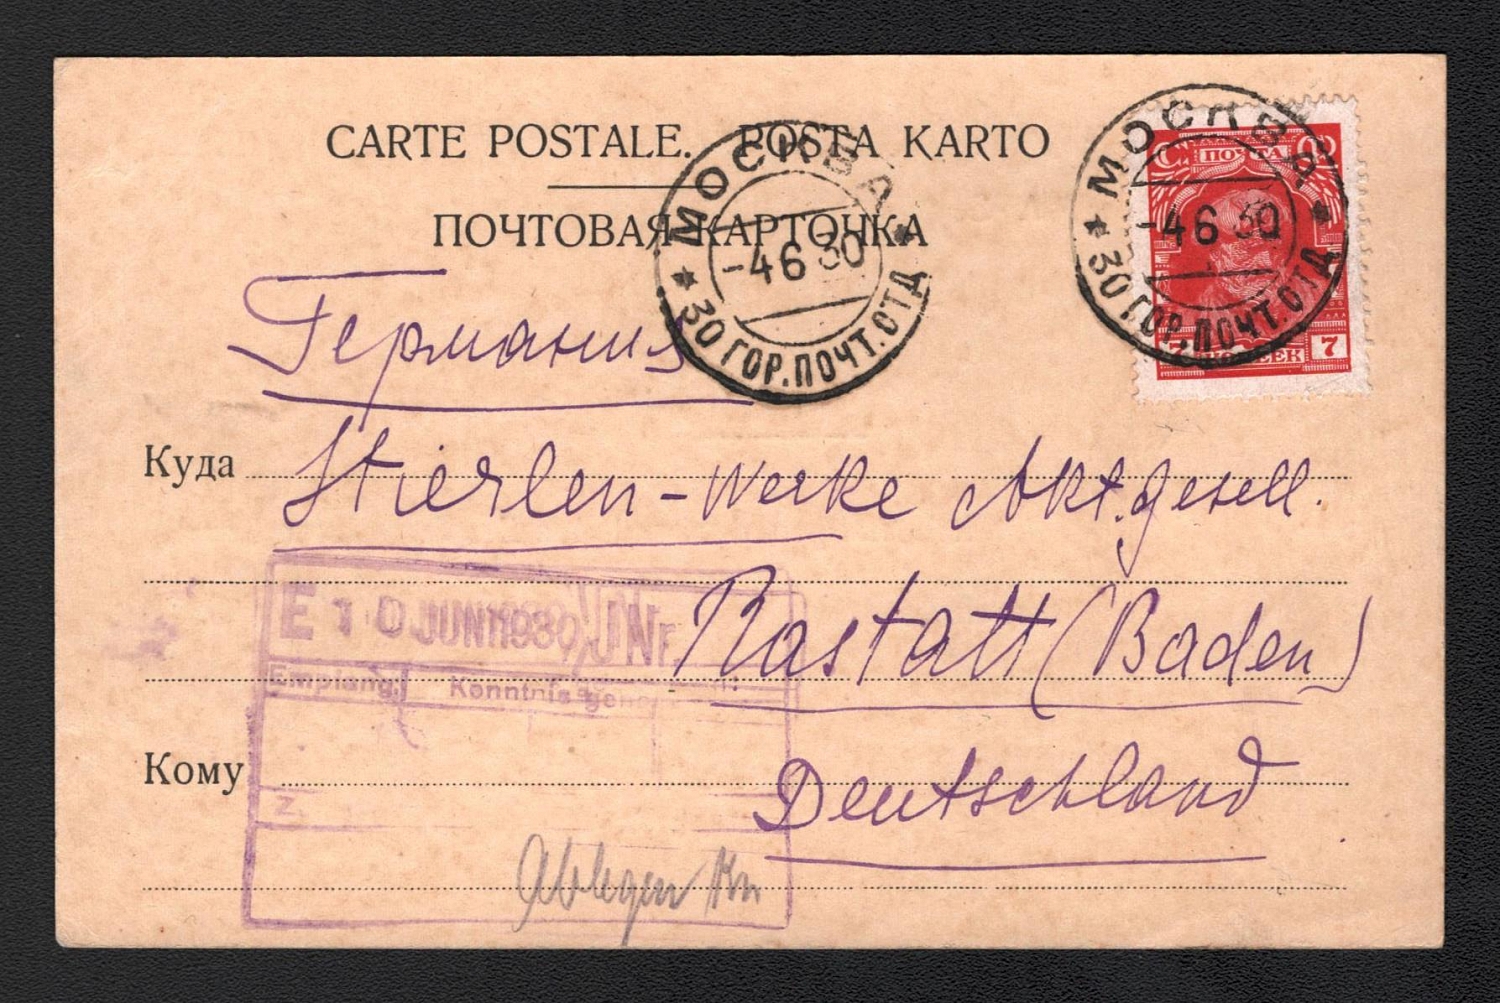 CARTE POSTALE. POSTA KARTO
ПОЧТОВАЯ КАРТОЧКА
МОСКВА
-4 6 30
30 ГОР.ПОЧТ.ОТД
МОСКВА
-4 6 30
30 ГОР.ПОЧТ.ОТД
ПОЧТА
7
Германия
Куда Stierlen-Werke Akt.gesell.
Rastatt (Baden)
E 10 JUNI 1930 JNr
Empfang. Kenntnis
Кому Deutschland
Z
Ablegen